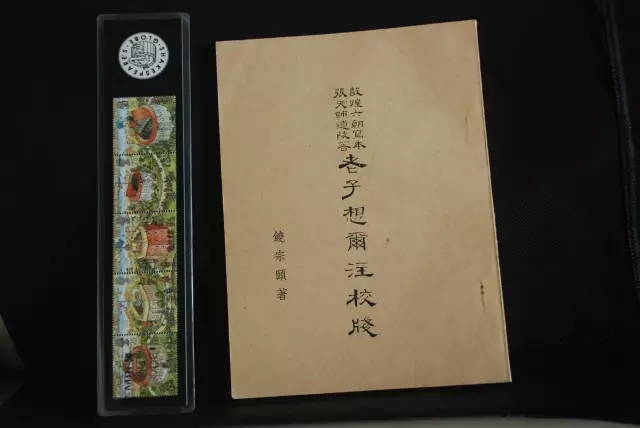 SHAKESPEARE'S GLOBE
敦煌六朝寫本
張天師道陵著
老子想爾注校牋
饒宗頤著